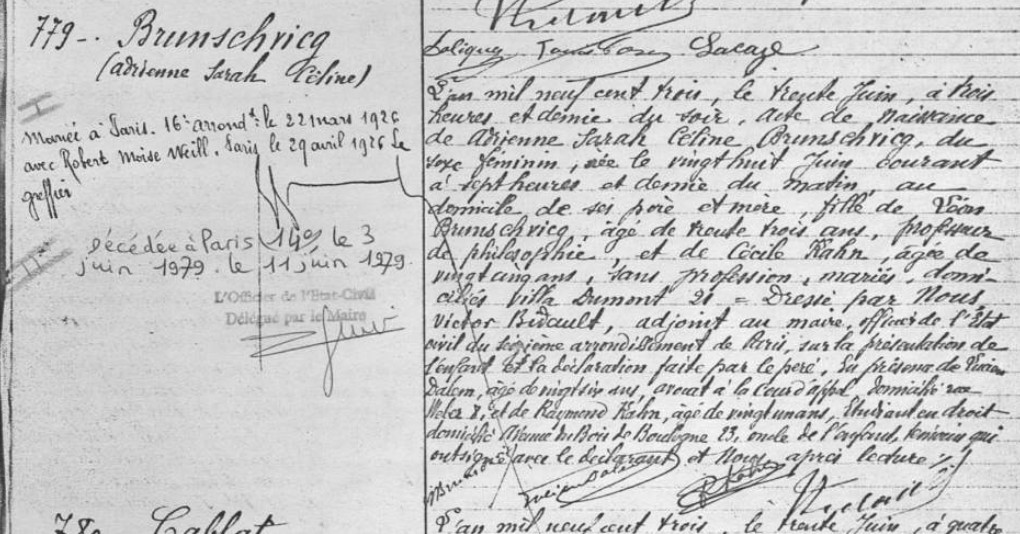 779-. Brunschvicg
(Adrienne Sarah Céline)
Mariée à Paris. 16e arrondt. le 22 mars 1926
avec Robert Moïse Weill. Paris le 29 avril 1926 Le
greffier
Décédée à Paris 14e, le 3
juin 1979. le 11 juin 1979.
L'Officier de l'Etat-Civil
Délégué par le Maire
Lacaze
L'an mil neuf cent trois, le trente Juin, à trois
heures et demie du soir, acte de naissance
de Adrienne Sarah Céline Brunschvicg, du
sexe féminin, née le vingt huit Juin courant
à sept heures et demie du matin, au
domicile de ses père et mère, fille de Léon
Brunschvicg, âgé de trente trois ans, professeur
de philosophie, et de Cécile Kahn, âgée de
vingt cinq ans, sans profession, mariés, domi-
ciliés villa Dumont 21 = Dressé par Nous,
Victor Bidault, adjoint au maire, officier de l'Etat
civil du seizième arrondissement de Paris, sur la présentation de
l'enfant et la déclaration faite par le père, En présence de
âgé de vingt six ans, avocat à la Cour d'appel, domicilié rue
8, et de Raymond Kahn, âgé de vingt un ans, Etudiant en droit
domicilié Avenue du Bois de Boulogne 23, oncle de l'enfant, témoins qui
ont signé avec le déclarant et Nous après lecture ./.
780 Cablat
L'an mil neuf cent trois, le trente Juin, à quatre